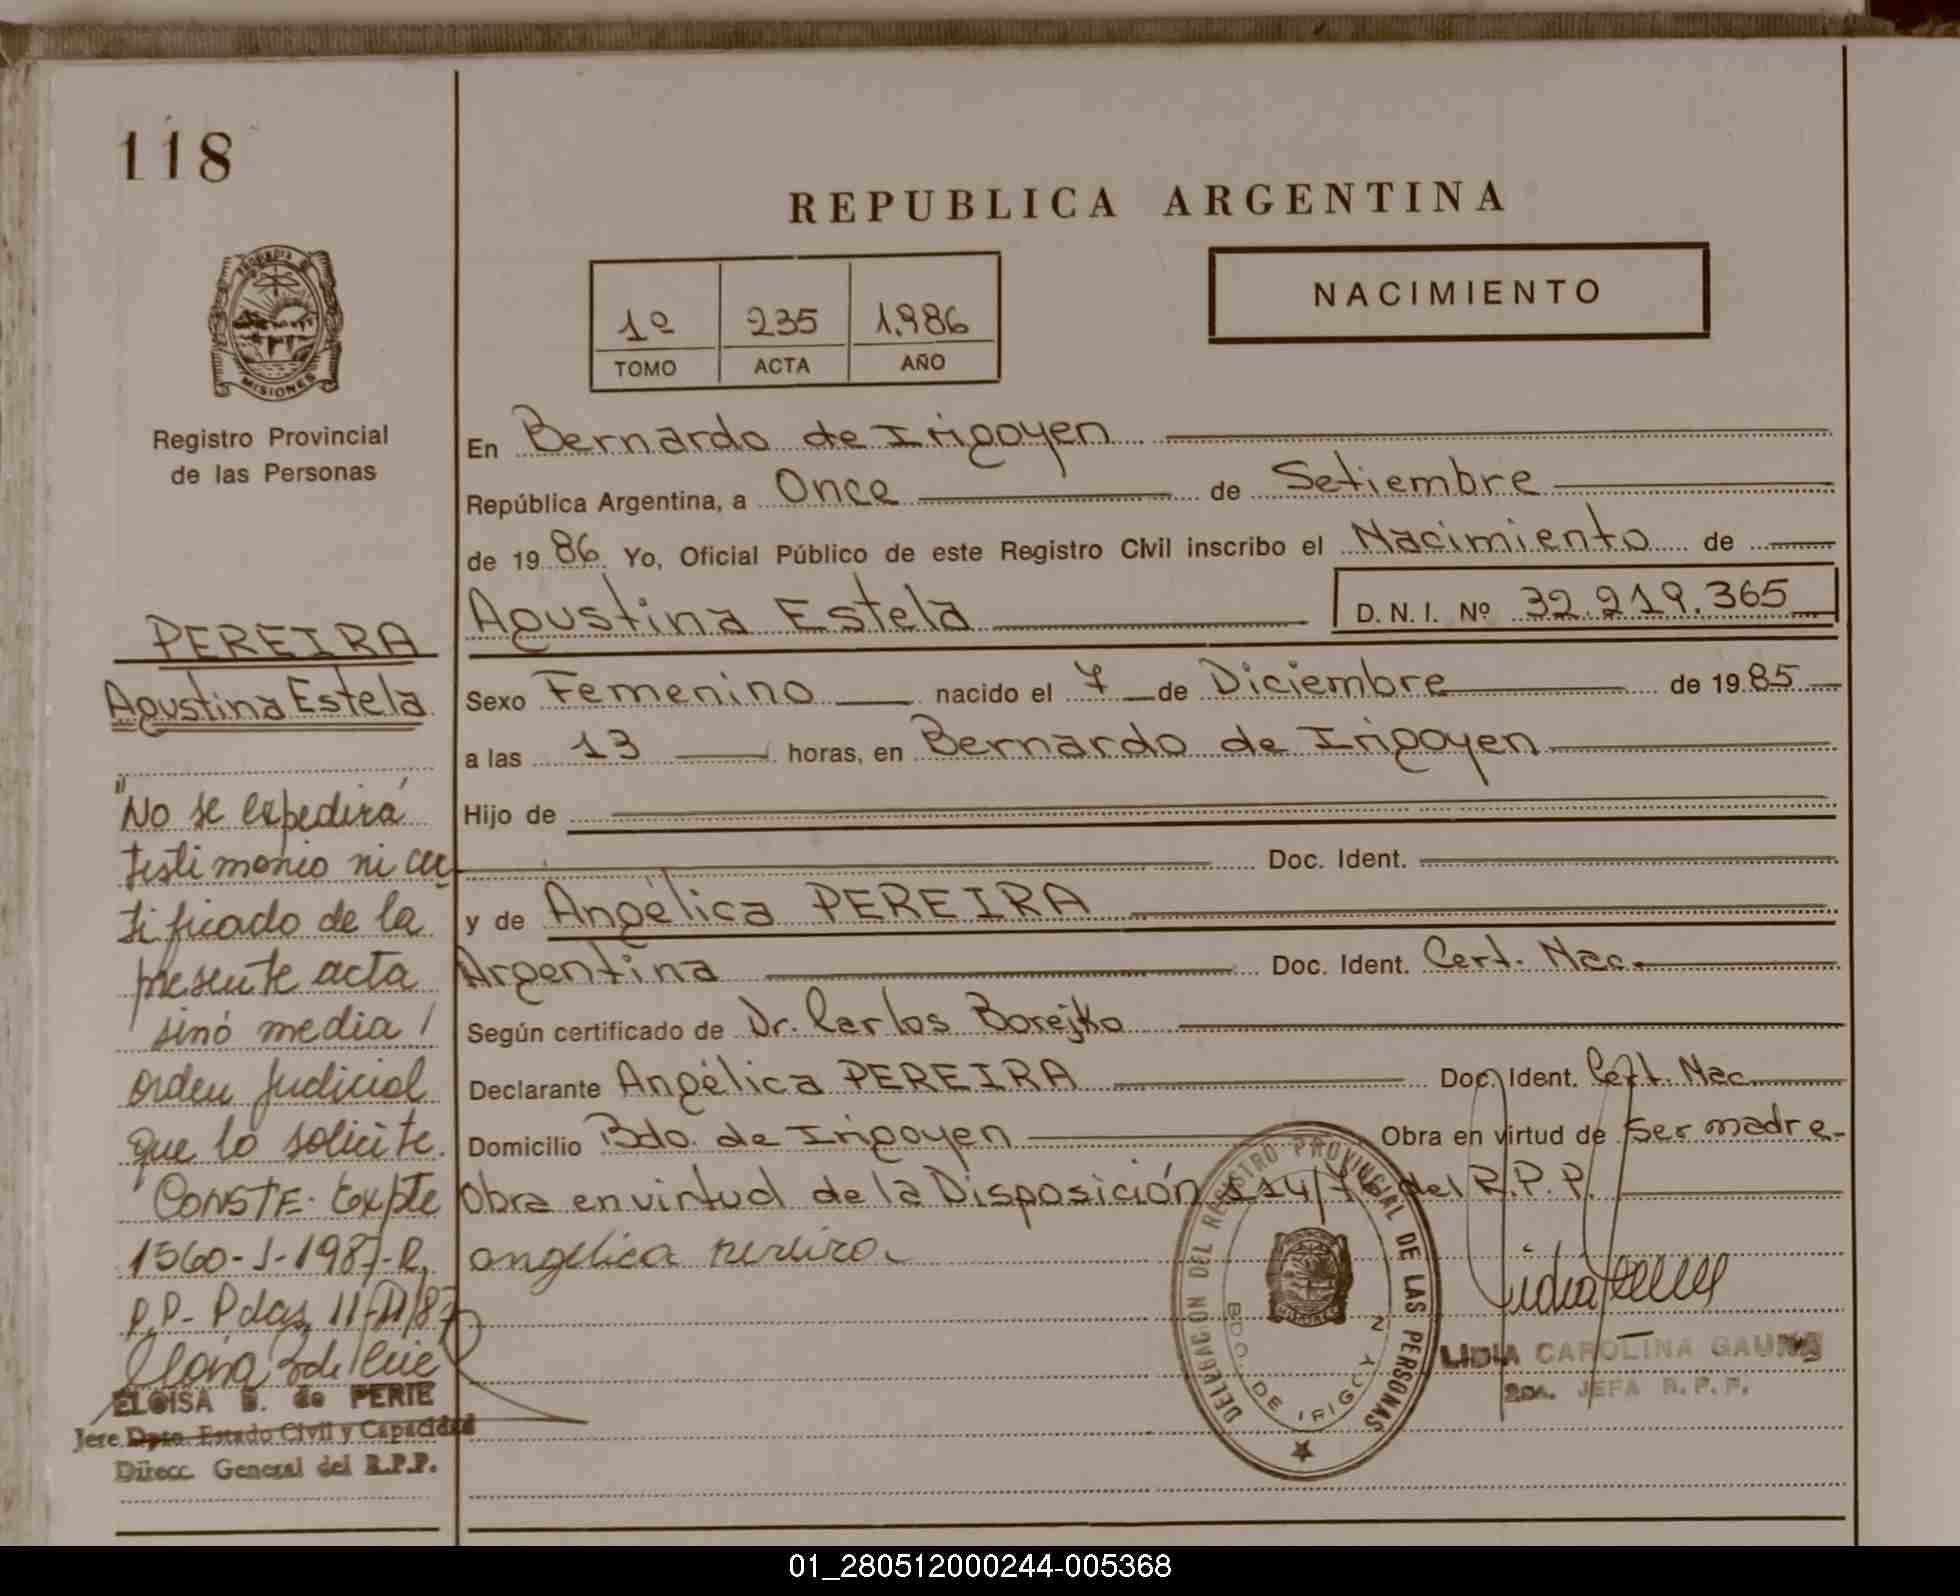 118
REPUBLICA ARGENTINA
MISIONES
Registro Provincial
de las Personas
1º 235 1.986
TOMO ACTA AÑO
NACIMIENTO
En Bernardo de Irigoyen
República Argentina, a Once de Setiembre
de 1986 Yo, Oficial Público de este Registro Civil inscribo el Nacimiento de
Agustina Estela D. N. I. Nº 32.219.365
Sexo Femenino nacido el 7 de Diciembre de 1985
a las 13 horas, en Bernardo de Irigoyen
Hijo de
Doc. Ident.
y de Angélica PEREIRA
Argentina Doc. Ident. Cert. Nac.
Según certificado de Dr. Carlos Borejko
Declarante Angélica PEREIRA Doc. Ident. Cert. Nac.
Domicilio Bdo. de Irigoyen Obra en virtud de ser madre-
Obra en virtud de la Disposición 114/76 del R.P.P.
angelica pereira
DELEGACION DEL REGISTRO PROVINCIAL DE LAS PERSONAS
BDO. DE IRIGOYEN
LIDIA CAROLINA GAUNA
2DA. JEFA R.P.P.
PEREIRA
Agustina Estela
"No se expedirá
testimonio ni cer
tificado de la
presente acta
sinó media
orden judicial
que lo solicite.
CONSTE- Expte
1560-J-1987-R.
P.P- Pdas, 11-11/87
ELOISA B. de PERIE
Jefe Dpto. Estado Civil y Capacidad
Direcc. General del R.P.P.
01_280512000244-005368